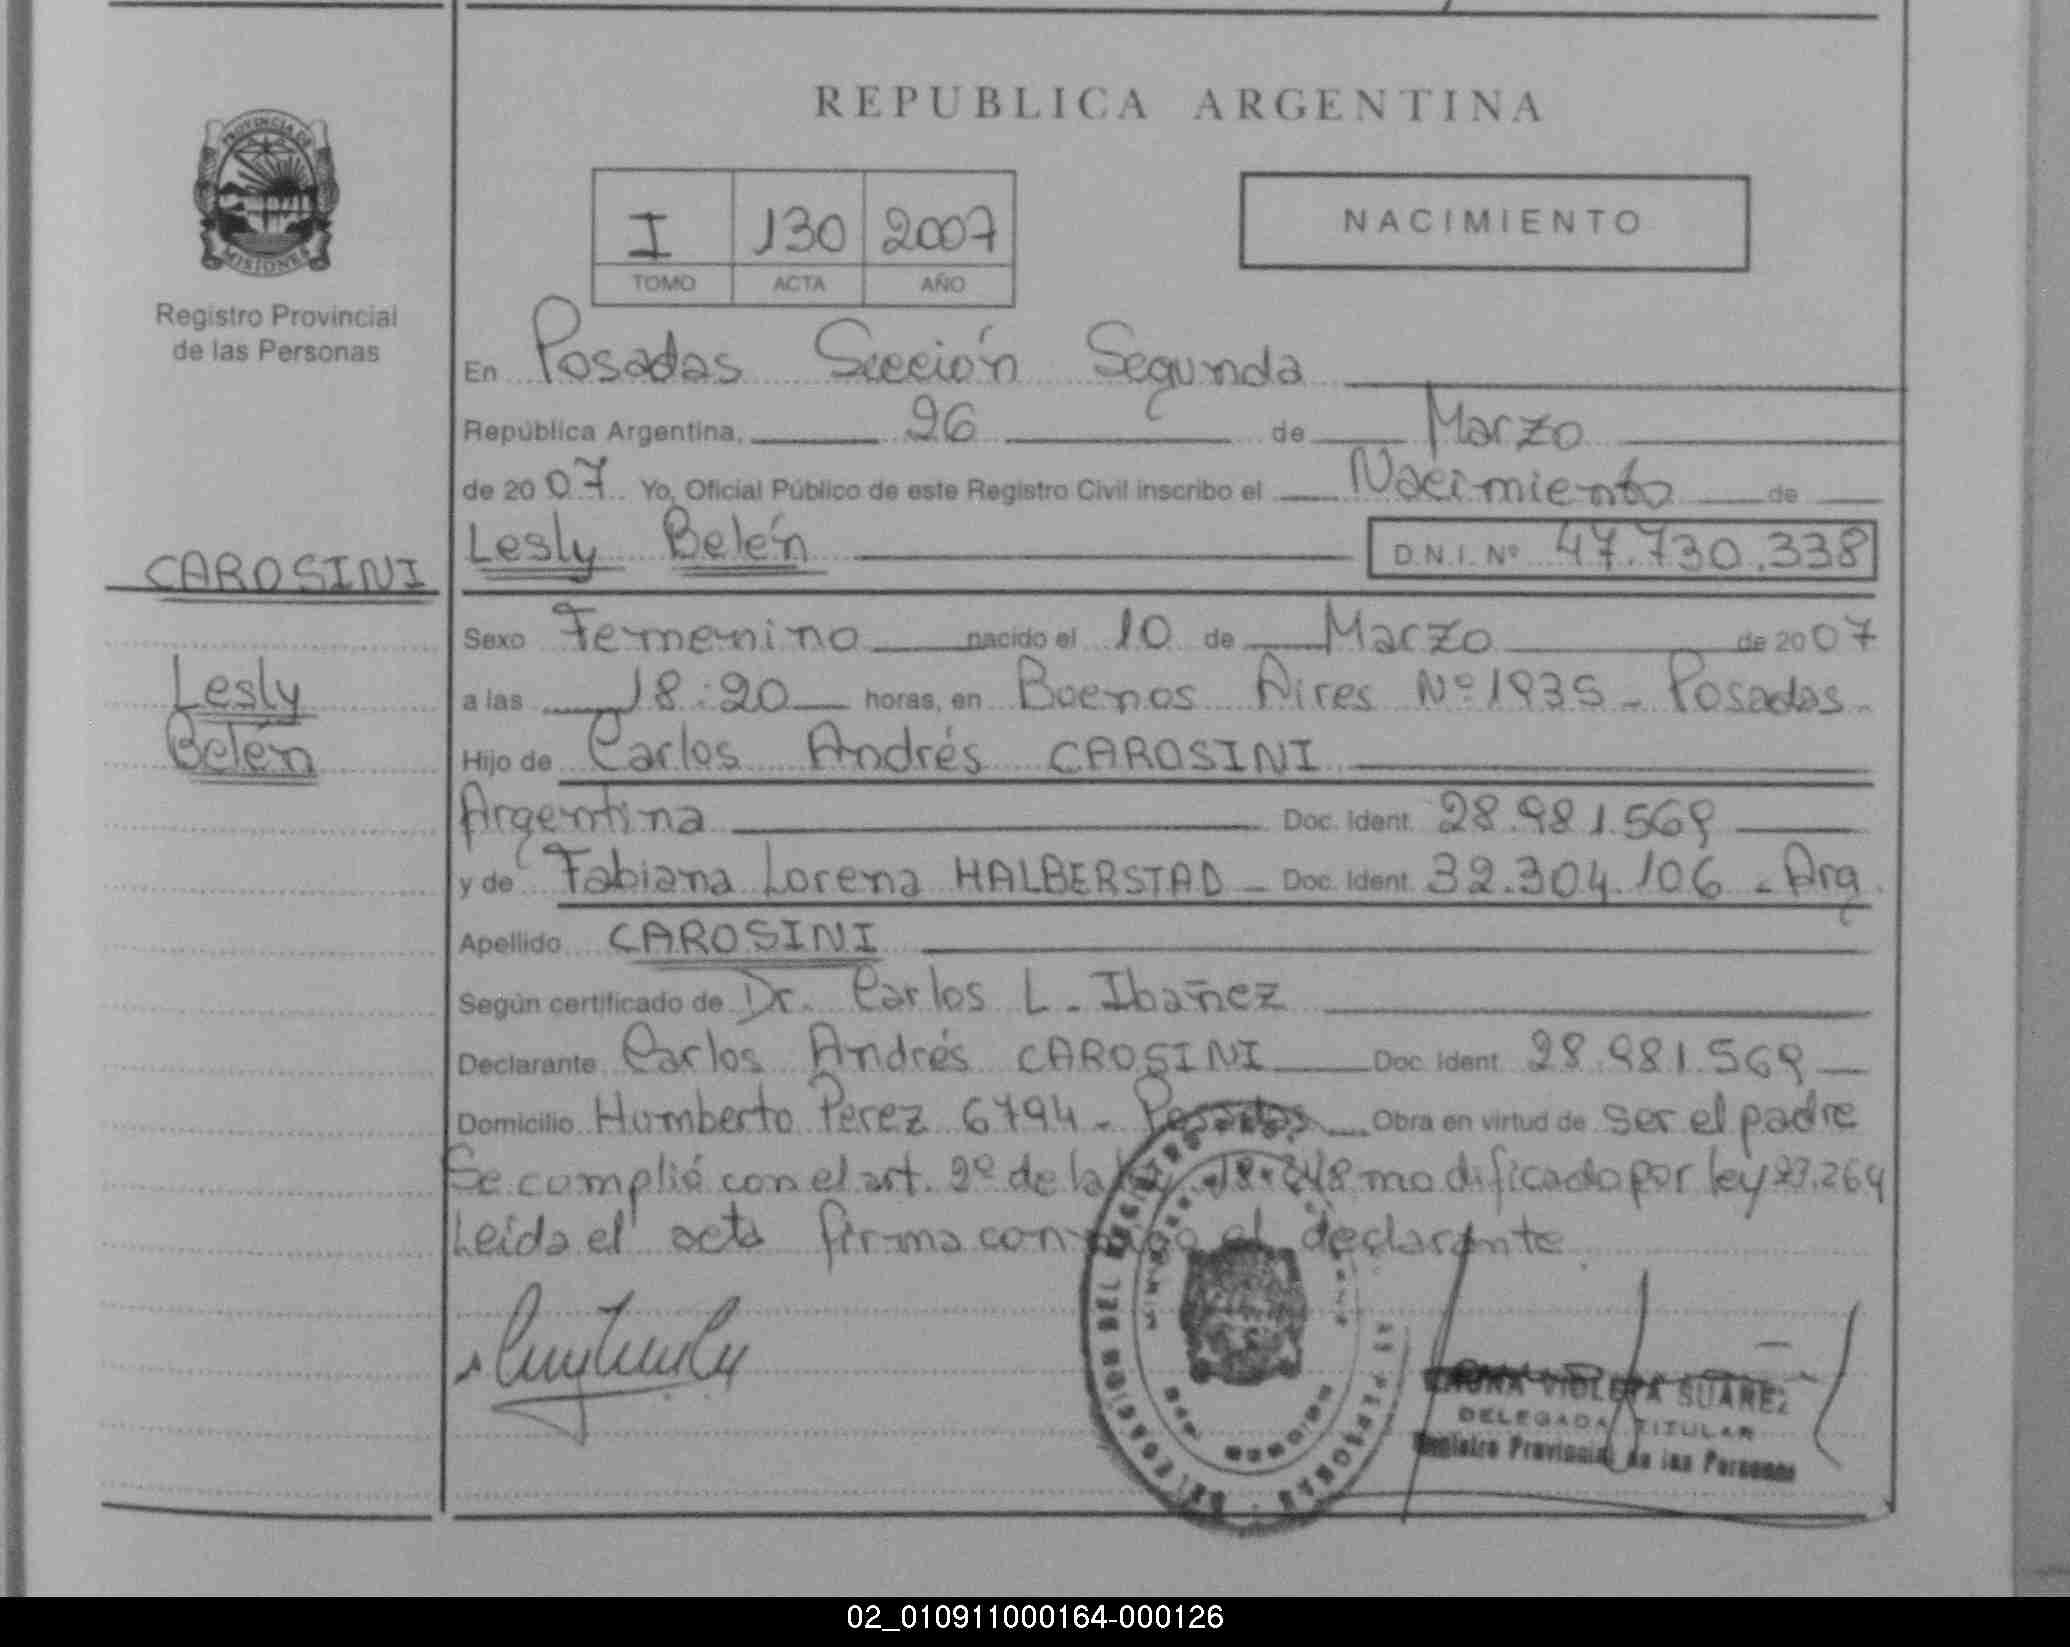 REPUBLICA ARGENTINA
PROVINCIA DE
MISIONES
Registro Provincial
de las Personas
I 130 2007
TOMO ACTA AÑO
NACIMIENTO
En Posadas Sección Segunda
República Argentina, 26 de Marzo
de 2007 Yo, Oficial Público de este Registro Civil inscribo el Nacimiento de
CAROSINI
Lesly Belén D.N.I. Nº 47.730.338
Sexo Femenino nacido el 10 de Marzo de 2007
Lesly
Belén
a las 18:20 horas, en Buenos Aires Nº 1935 - Posadas -
Hijo de Carlos Andrés CAROSINI
Argentina Doc. Ident. 28.981.569
y de Fabiana Lorena HALBERSTAD - Doc. Ident. 32.304.106 - Arg.
Apellido CAROSINI
Según certificado de Dr. Carlos L. Ibañez
Declarante Carlos Andrés CAROSINI Doc. Ident. 28.981.569
Domicilio Humberto Perez 6794 - Posadas Obra en virtud de ser el padre
Se cumplió con el art. 2º de la 18.248 modificado por ley 23.264
Leída el acta firma conmigo el declarante
VIOLETA SUAREZ
DELEGADA TITULAR
Registro Provincial de las Personas
02_010911000164-000126